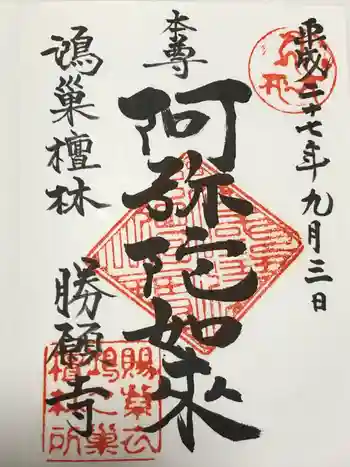 平成二十七年九月三日
本尊
阿弥陀如来
鴻巣檀林
勝願寺